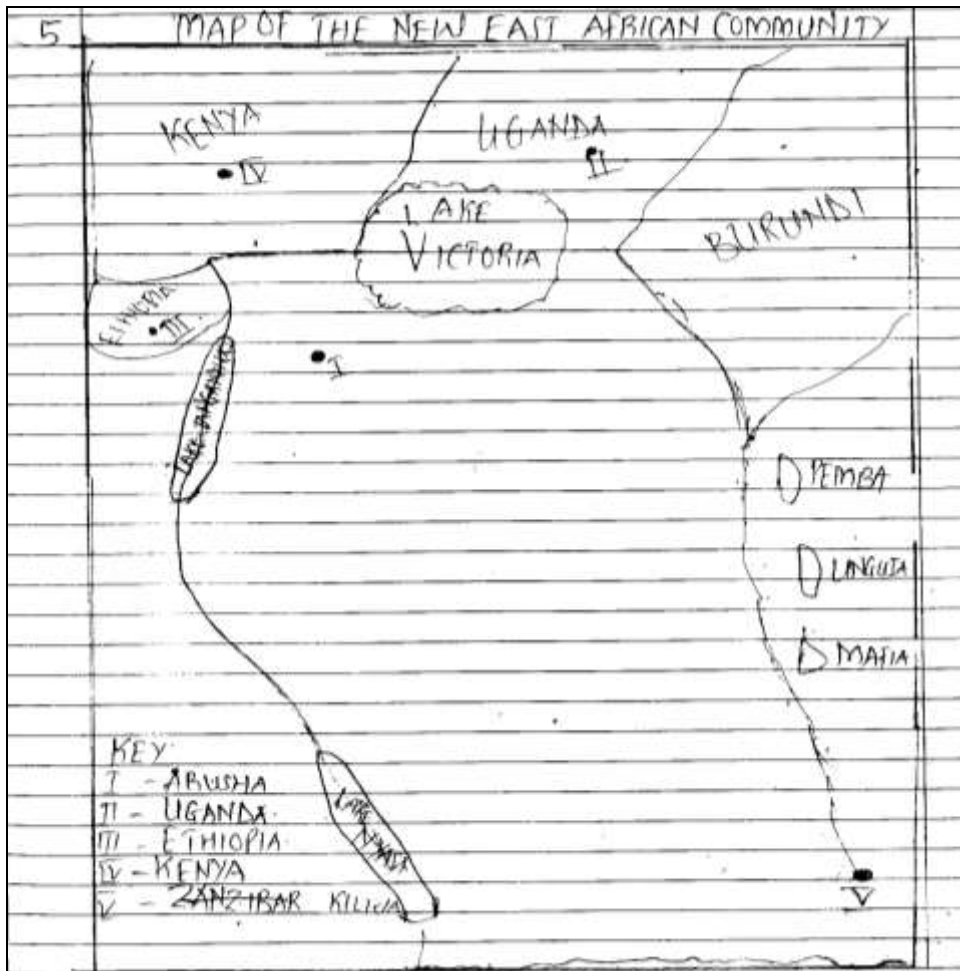 5 MAP OF THE NEW EAST AFRICAN COMMUNITY
KENYA
IV
UGANDA
II
LAKE
VICTORIA
BURUNDI
ETHIOPIA
III
I
LAKE
PEMBA
UNGUJA
MAFIA
LAKE
V
KEY
I - ARUSHA
II - UGANDA
III - ETHIOPIA
IV - KENYA
V - ZANZIBAR